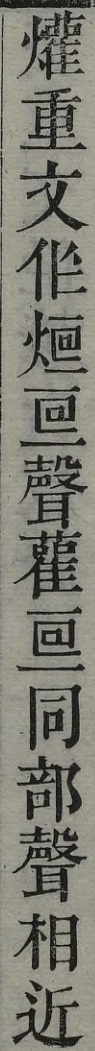 爟重文作烜亘聲雚亘同部聲相近